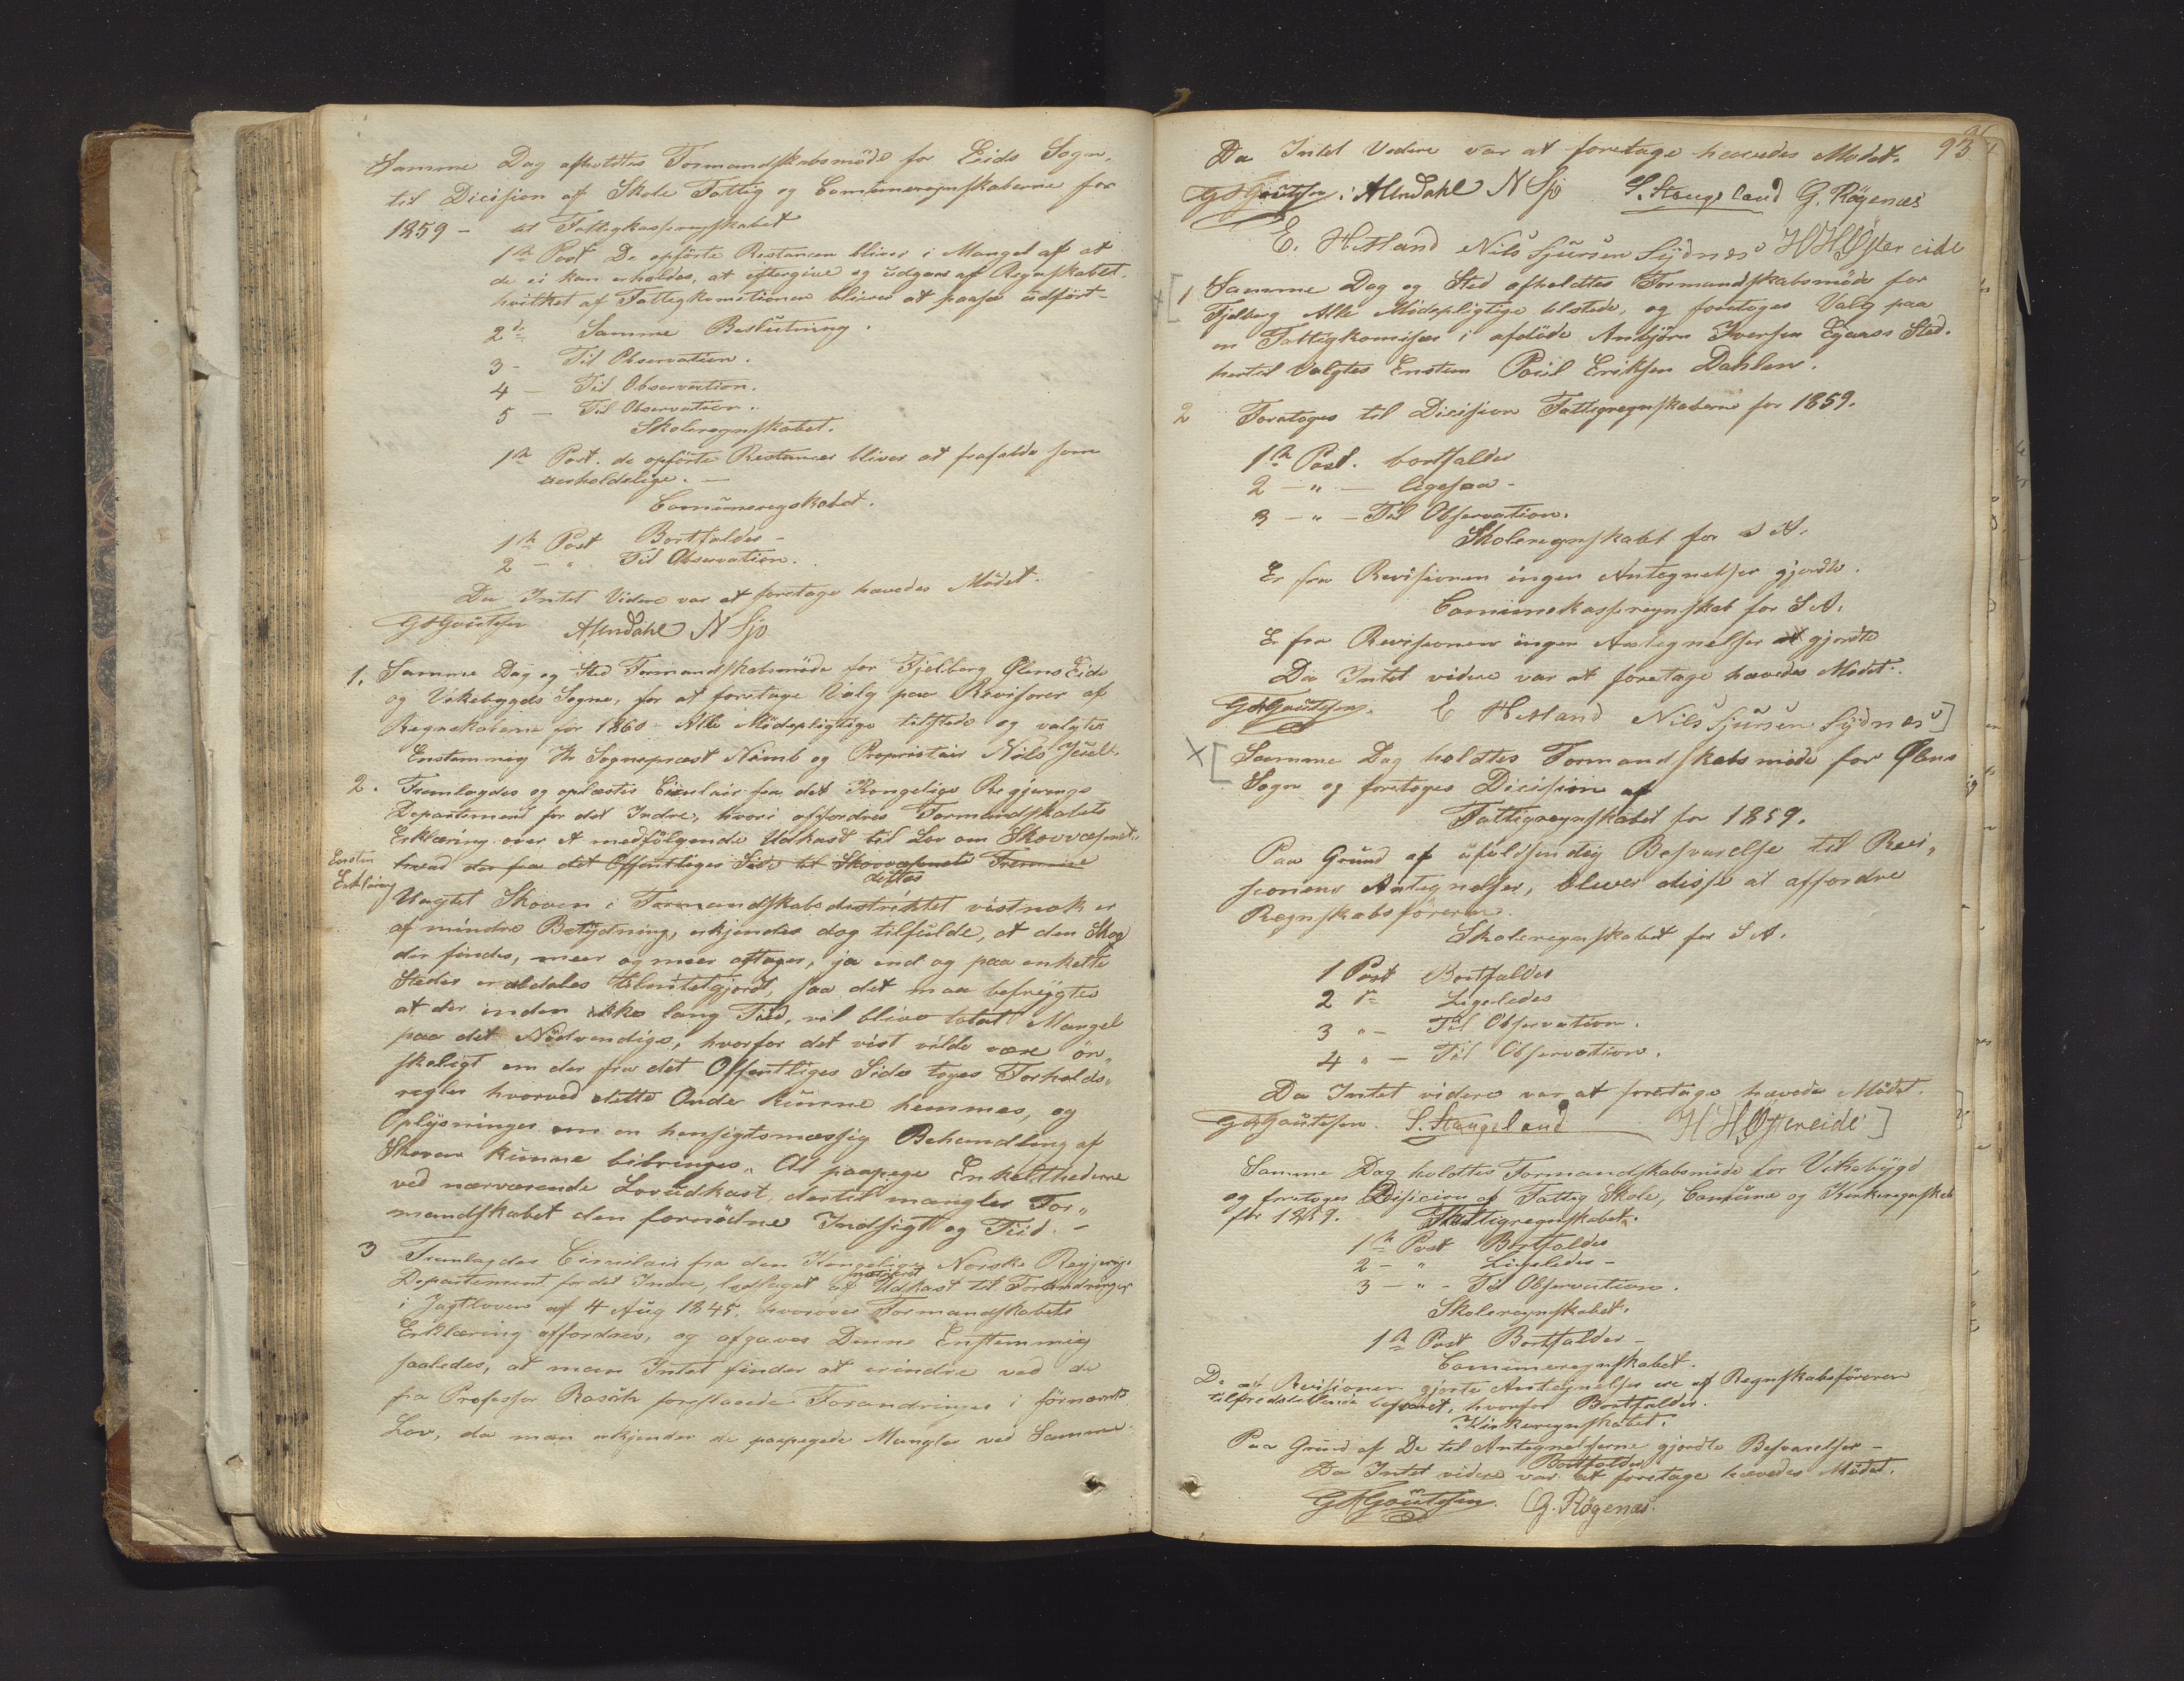 Samme Dag afholdtes Formandskabsmöde for Eids Sogn,
til Dicision af Skole Fattig og Communeregnskaberne for
1859 - at Fattigkasseregnskabet
1ste Post De opförte Restancer bliver i Mangel af at
de ei kan erholdes, at eftergive og udgaae af Regnskabet.
hvilket af Fattigkomitionen bliver at paase udfört -
2d. Samme Beslutning.
3 - Til Observation.
4 - Til Observation.
5 - Til Observation.
Skoleregnskabet.
1ste Post. de opförte Restancer bliver at frafalde som
uerholdelige. -
Comuneregskabet.
1ste Post Bortfalder -
2 - " Til Observation.
Da Intet Videre var at foretage hævedes Mödet.
GHGautesen AUndahl N Sjo
1. Samme Dag og Sted Formandskabsmöde for Fjelberg Ølens Eids
og Vikebygds Sogne, for at foretage Valg paa Revisorer af
Regnskaberne for 1860 - Alle Mödepligtige tilstede og valgtes
Enstemmig Hr Sognepræst Nimb og Proprietair Nils Juel.
2. Fremlagdes og oplæstes Cirulair fra det Kongelige Regjerings
Departement for det Indre, hvori affordres Formandskabets
Erklæring over et medfölgende Udkast til Lov om Skovvæsenet.
hvad der fra det Offentliges Side til Skovvæsnets Fremme
Enstem
Erklæring
dittes
Uagtet Skoven i Formandskabsdistriktet vistnok er
af mindre Betydning, erkjendes dog tilfulde, at den Skog
der findes, meer og meer aftager, ja end og paa enkelte
Steder er aldeles tilintetgjordt, saa det maa befrygtes
at der inden ikke lang Tiid, vil blive total Mangel
paa det Nödvendige, hvorfor det vist vilde være ön„
skeligt om der fra det Offentliges Side toges Forholds„
regler hvorved dette Onde kunne hemmes, og
Oplysninger om en hensigtsmæssig Behandling af
Skoven kunne bibringes. At paapege Enkelthederne
ved nærværende Lovudkast, dertil mangler For„
mandskabet den fornödne Indsigt og Tiid. -
3 Fremlagdes Circulair fra den Kongelige Norske Regjerings
Departement for det Indre, ledsaget af Udkast til Forandringer
i Jagtloven af 4 Aug 1845. hvorover Formandskabets
Erklæring affordres, og afgaves Denne Enstemmig
saaledes, at man Intet finder at erindre ved de
fra Professor Rasch foreslaaede Forandringer i förnævnte
Lov, da man erkjender de paapegede Mangler ved Samme.
93
Da Intet Videre var at foretage hævedes Mödet.
GHGautesen. AUndahl N Sjo S. Stangeland G. Røgenæs
E. Hetland Nils Sjursen Sydnes HHØstereide
1 Samme Dag og Sted afholdtes Formandskabsmöde for
Fjelberg Alle Mödepligtige tilstede, og foretoges Valg paa
en Fattigkomisær i afdöde Anbjörn Iversen Egaaes Sted.
hertil valgtes Enstem Poul Eriksen Dahlen.
2 Foretoges til Dicision Fattigregnskaberne for 1859.
1ste Post. bortfalder
2 - " - ligesaa -
3 - " - Til Observation.
Skoleregnskabet for S A.
Er fra Revisionen ingen Antegnelser gjordte.
Comunekasseregnskab for S A.
Er fra Revisionen ingen Antegnelser at gjordte
Da Intet videre var at foretage hævedes Mødet.
GHGautesen. E Hetland Nils Sjursen Sydnes ]
X [ Samme Dag holdtes Formandskabsmöde for Ølens
Sogn og foretoges Dicision af
Fattigregnskabet for 1859.
Paa Grund af ufuldstendig Besvarelse til Revi„
sionens Antegnelser, bliver disse at affordre
Regnskabsföreren.
Skoleregnskabet for S A.
1 Post Bortfalder
2 d Ligeledes
3 " - Til Observation.
4 " - Til Observation.
Da Intet videre var at foretage hævedes Mödet.
GHGautesen. S. Stangeland HHØstereide ]
Samme Dag holdtes Formandskabsmöde for Vikebygd
og foretoges Disicion af Fattig Skole, Comune og Kirkeregnskab
for 1859. Fattigregnskabet.
1ste Post Bortfalder
2 - " Ligeledes -
3 - " - Til Observation.
Skoleregnskabet.
1ste Post Bortfalder -
Comuneregnskabet.
De af Revisionen gjorte Antegnelser ere af Regnskabsföreren
tilfredsstillende besvaret, hvorfor Bortfalder.
Kirkeregnskabet.
Paa Grund af De til Antegnelserne gjordte Besvarelser -
Bortfalder
Da Intet videre var at foretage hævedes Mödet.
GHGautesen. G. Røgenæs.